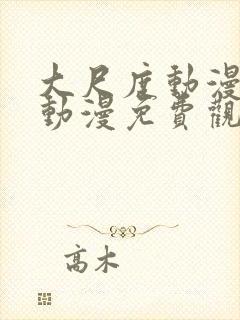 大尺度動漫
動漫免費觀
高木